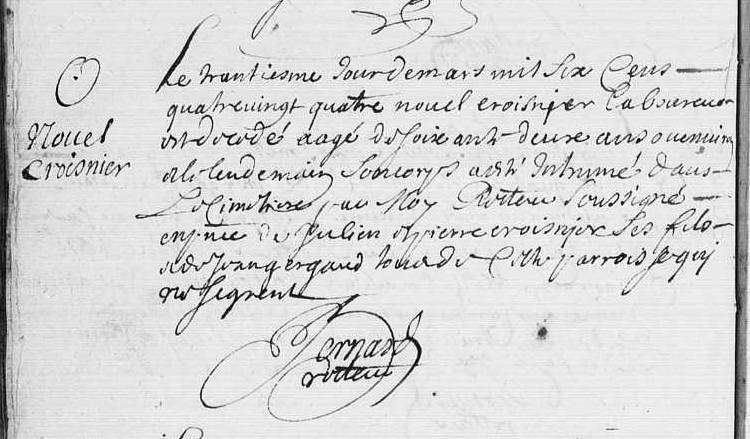 Le trantiesme Jour de mars mil six Cens
quatrevingt quatre nouel croisnier Laboureur
est decedé aagé de soixante deux ans ou environ
Nouel
Croisnier
et le lendemain Son corps a esté Inhumé dans
Le Cimetiere par Moy Recteur Soussigné
en pnce de Julien et pierre croisnier Ses fils
et de Jean gergaud tous de Cette parroisse qui
ne Signent
Bernard
recteur